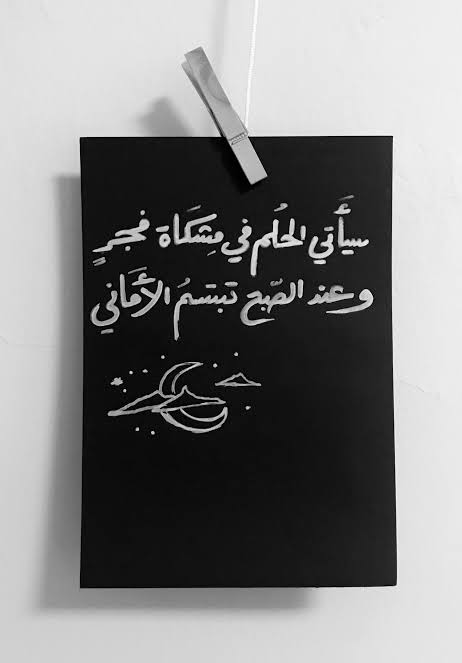 سيأَتي الحُلم في مِشكَاة فجرٍ
وعند الصّبح تبتسمُ الأَمَاني